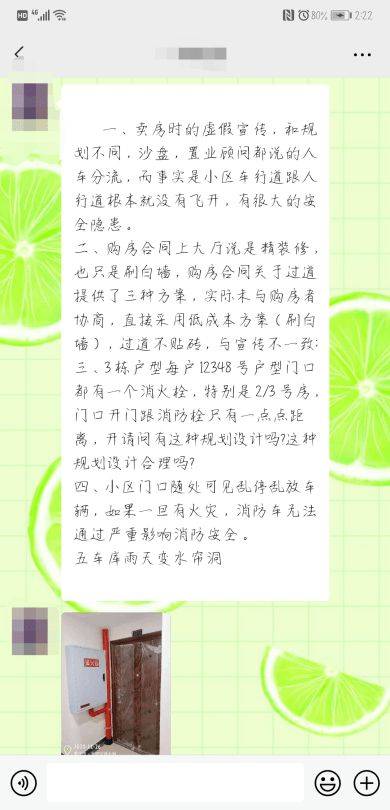 HD 4G 80% 2:22
一、卖房时的虚假宣传，和规
划不同，沙盘，置业顾问都说的人
车分流，而事实是小区车行道跟人
行道根本就没有飞开，有很大的安
全隐患。
二、购房合同上大厅说是精装修，
也只是刷白墙，购房合同关于过道
提供了三种方案，实际未与购房者
协商，直接采用低成本方案（刷白
墙），过道不贴砖，与宣传不一致：
三、3栋户型每户12348号户型门口
都有一个消火栓，特别是2/3号房，
门口开门跟消防栓只有一点点距
离，开请问有这种规划设计吗?这种
规划设计合理吗?
四、小区门口随处可见乱停乱放车
辆，如果一旦有火灾，消防车无法
通过严重影响消防安全。
五车库雨天变水帘洞